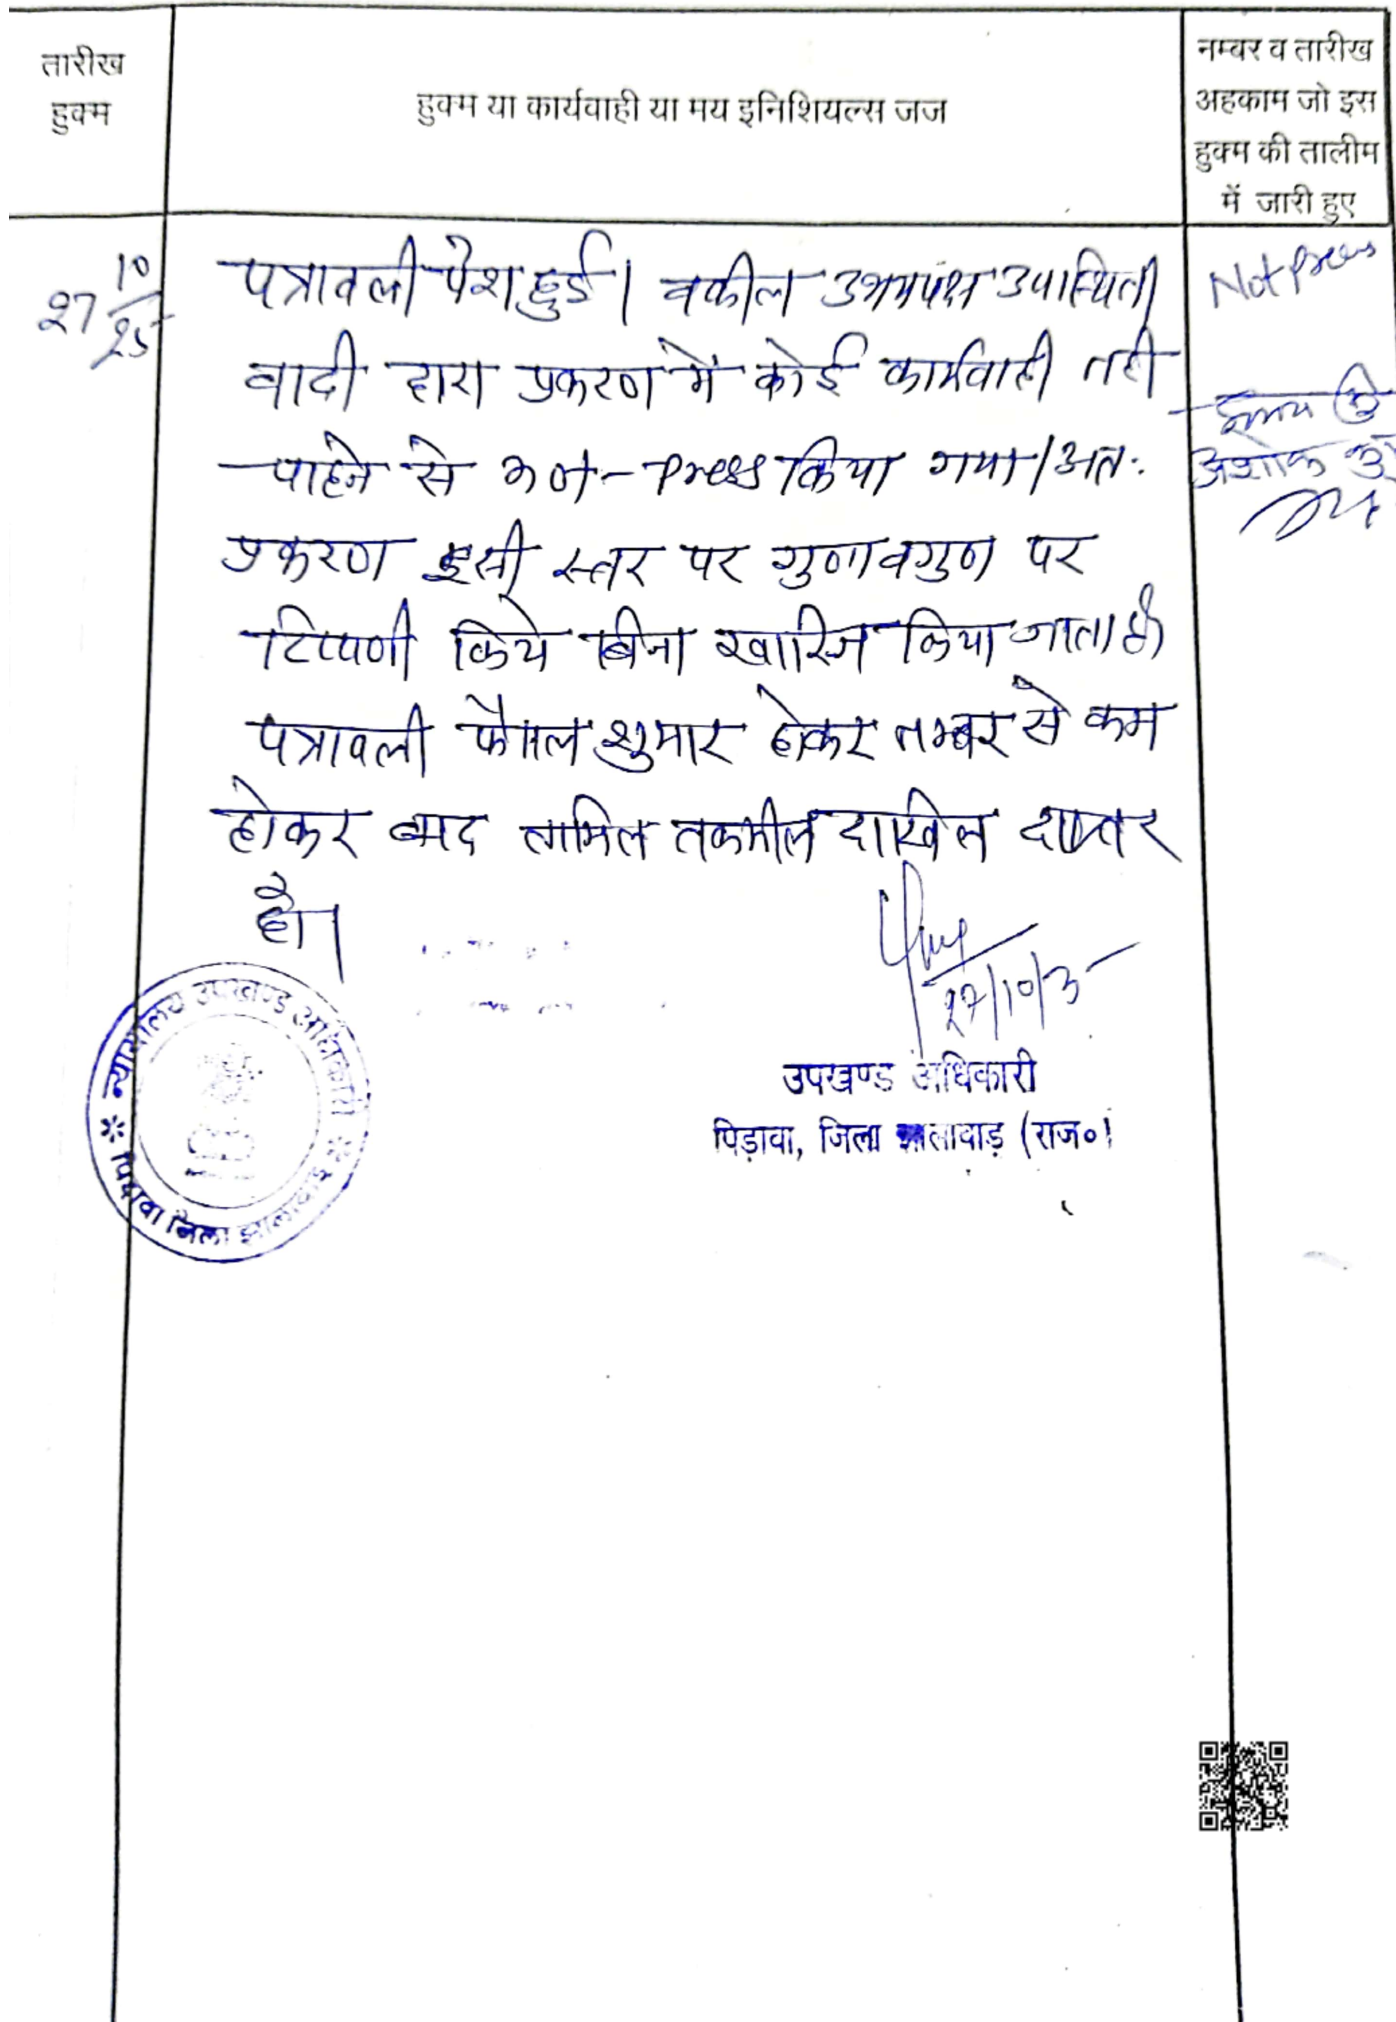 तारीख
हुक्म
हुक्म या कार्यवाही या मय इनिशियल्स जज
नम्बर व तारीख
अहकाम जो इस
हुक्म की तालीम
में जारी हुए
27 10/25
पत्रावली पेश हुई। वकील उभयपक्ष उपस्थित।
वादी द्वारा प्रकरण में कोई कार्यवाही नही
चाहने से not-press किया गया। अतः
प्रकरण इसी स्तर पर गुणावगुण पर
टिप्पणी किये बिना खारिज किया जाता है।
पत्रावली फैसल शुमार होकर नम्बर से कम
होकर बाद तामिल तकमील दाखिल दफ्तर
हो।
Not Press
अशोक
27/10/25
उपखण्ड अधिकारी
पिड़ावा, जिला झालावाड़ (राज०)
न्यायालय उपखण्ड अधिकारी
पिड़ावा जिला झालावाड़